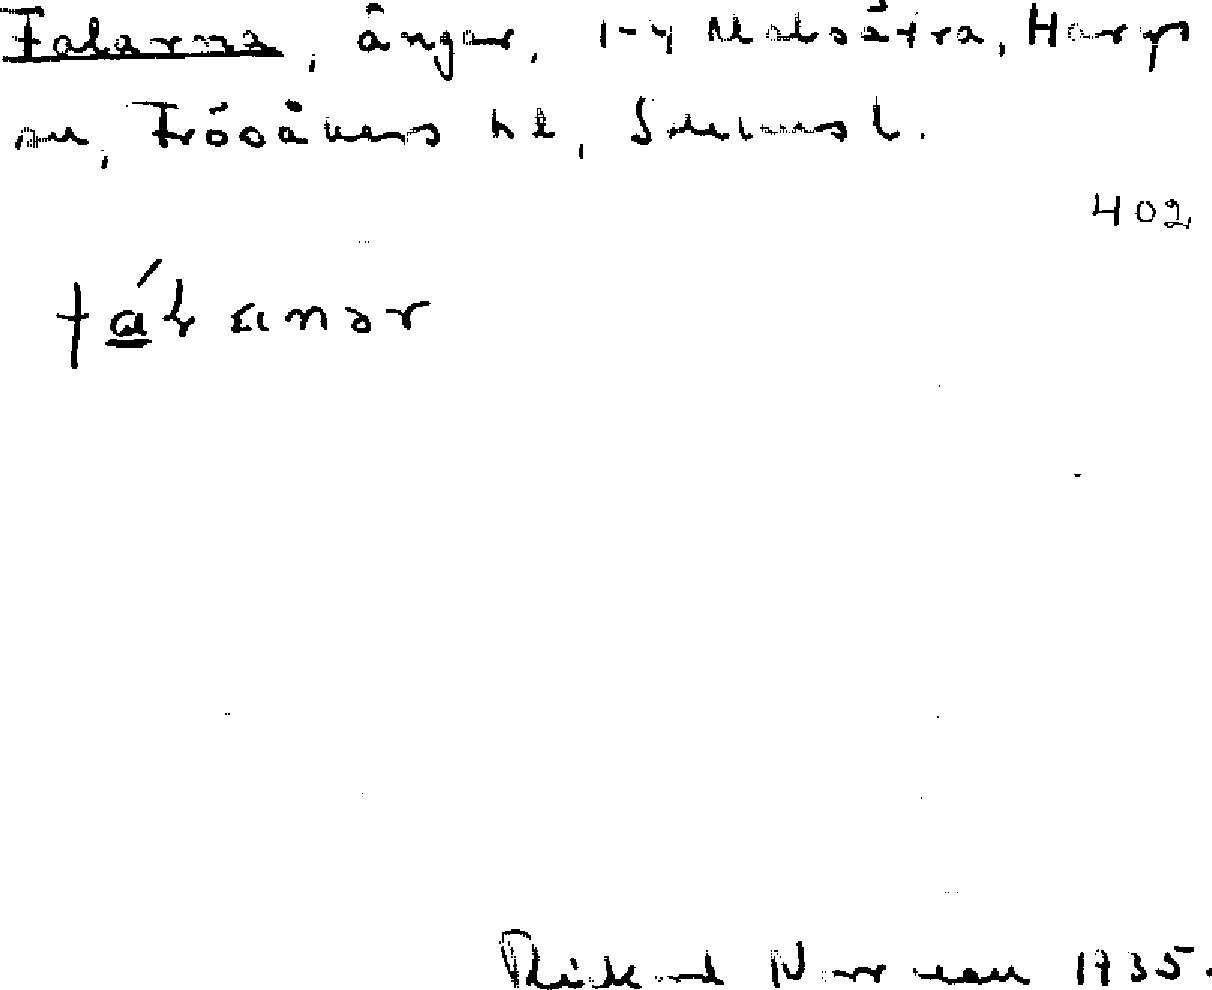 Falarna, ängar, 1-4 Malsätra, Harg
sn, Frösåkers hd, Stockhsl.
402
fálanər
Rickard Norrman 1935.